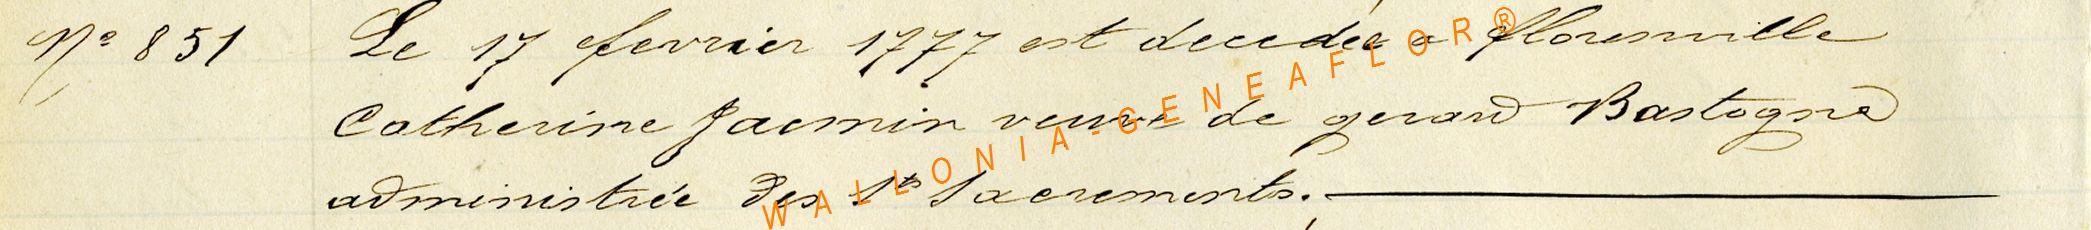 Nº 851 Le 17 fevrier 1777 est decedée a florenville
Catherine Jacmin veuve de gerard Bastogne
administrée des Sts Sacrements.
WALLONIA-GENEAFLOR®